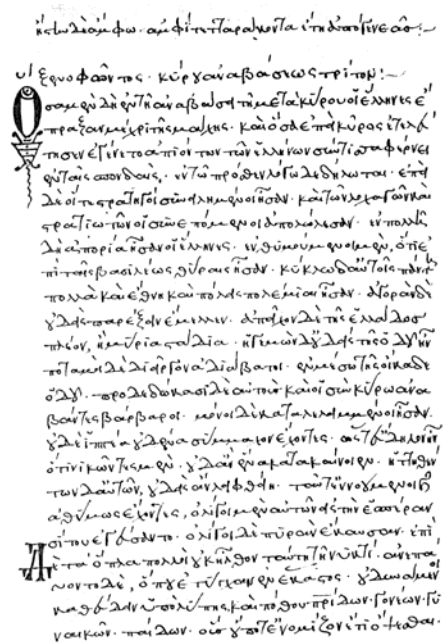 ἤστω δὲ ἄμφω· ἀμφὶ τετταράκοντα ἔτη ἀπὸ γενεᾶς:
ξενοφῶντος· κύρου ἀναβάσεως τρίτον:
Ὅσα μὲν δὴ ἐν τῇ ἀναβάσει τῇ μετὰ κύρου οἱ ἕλληνες ἔ
πραξαν μέχρι τῆς μάχης· καὶ ὅσα ἐπεὶ κῦρος ἐτελεύ
τησεν ἐγένετο ἀπιόντων τῶν ἑλλήνων σὺν τισαφέρνει
ἐν ταῖς σπονδαῖς, ἐν τῷ πρόσθεν λόγῳ δεδήλωται· ἐπεὶ
δὲ οἵ τε στρατηγοὶ συνειλημμένοι ἦσαν· καὶ τῶν λοχαγῶν καὶ
στρατιωτῶν οἱ συνεπόμενοι ἀπολώλεσαν· ἐν πολλῇ
δὴ ἀπορίᾳ ἦσαν οἱ ἕλληνες· ἐνθυμούμενοι μὲν, ὅτι ἐ
πὶ ταῖς βασιλέως θύραις ἦσαν· κύκλῳ δὲ αὐτοῖς πάντῃ
πολλὰ καὶ ἔθνη καὶ πόλεις πολέμιαι ἦσαν· ἀγορὰν δὲ
οὐδεὶς παρέξειν ἔμελλεν· ἀπεῖχον δὲ τῆς ἑλλάδος
πλέον, ἢ μύρια στάδια· ἡγεμὼν δ' οὐδεὶς τῆς ὁδοῦ ἦν
ποταμοὶ δὲ διεῖργον ἀδιάβατοι· ἐν μέσῳ τῆς οἴκαδε
ὁδοῦ· προδεδώκασι δὲ αὐτοὺς καὶ οἱ σὺν κύρῳ ἀνα
βάντες βάρβαροι· μόνοι δὲ καταλελειμμένοι ἦσαν·
οὐδὲ ἱππέα οὐδένα σύμμαχον ἔχοντες· ὥστ' εὔδηλον ἦν
ὅτι νικῶντες μὲν· οὐδ' ἂν ἕνα κατακάνοιεν· ἡττηθέν
των δὲ αὐτῶν, οὐδεὶς ἂν λειφθείη· ταῦτ' ἐννοούμενοι καὶ
ἀθύμως ἔχοντες, ὀλίγοι μὲν αὐτῶν εἰς τὴν ἑσπέραν
σίτου ἐγεύσαντο· ὀλίγοι δὲ πῦρ ἀνέκαυσαν· ἐπὶ
δὲ τὰ ὅπλα πολλοὶ οὐκ ἦλθον ταύτῃ τῇ νυκτί· ἀνεπαύ
οντο δὲ, ὅπου ἐτύγχανεν ἕκαστος· οὐ δυνάμενοι
καθεύδειν ὑπὸ λύπης καὶ πόθου πατρίδων· γονέων, γυ
ναικῶν· παίδων· οὓς οὔποτ' ἐνόμιζον ἔτι ὄψεσθαι·